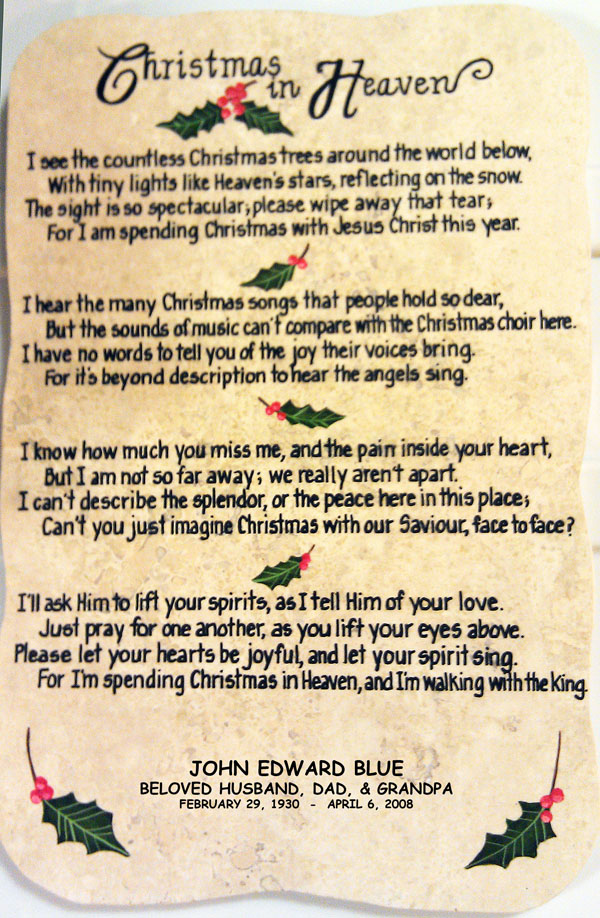 Christmas in Heaven
I see the countless Christmas trees around the world below,
With tiny lights like Heaven's stars, reflecting on the snow.
The sight is so spectacular; please wipe away that tear;
For I am spending Christmas with Jesus Christ this year.
I hear the many Christmas songs that people hold so dear,
But the sounds of music can't compare with the Christmas choir here.
I have no words to tell you of the joy their voices bring.
For it's beyond description to hear the angels sing.
I know how much you miss me, and the pain inside your heart,
But I am not so far away; we really aren't apart.
I can't describe the splendor, or the peace here in this place;
Can't you just imagine Christmas with our Saviour, face to face?
I'll ask Him to lift your spirits, as I tell Him of your love.
Just pray for one another, as you lift your eyes above.
Please let your hearts be joyful, and let your spirit sing.
For I'm spending Christmas in Heaven, and I'm walking with the king.
JOHN EDWARD BLUE
BELOVED HUSBAND, DAD, & GRANDPA
FEBRUARY 29, 1930 - APRIL 6, 2008